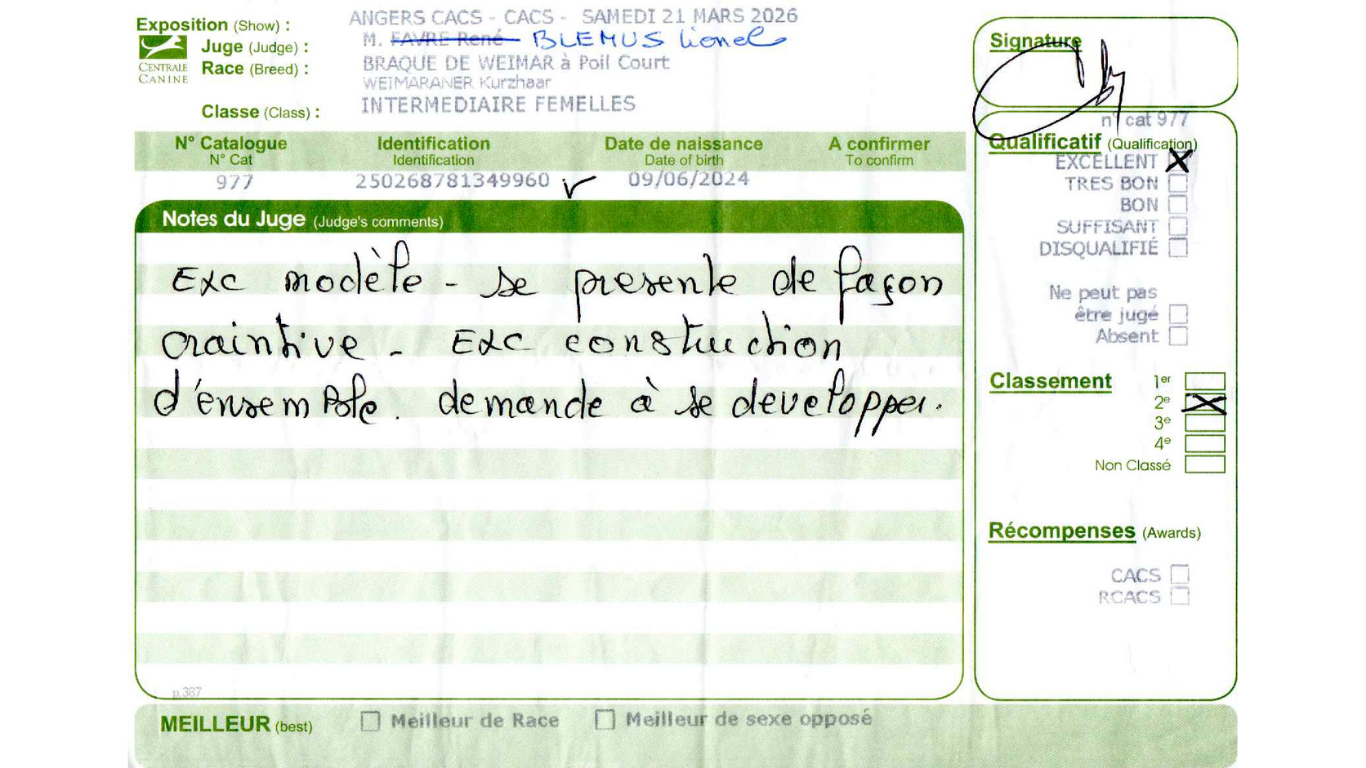 Exposition (Show) : ANGERS CACS - CACS - SAMEDI 21 MARS 2026
Juge (Judge) : M. FAVRE René BLEMUS Lionel
Race (Breed) : BRAQUE DE WEIMAR à Poil Court
WEIMARANER Kurzhaar
Classe (Class) : INTERMEDIAIRE FEMELLES
CENTRALE
CANINE
N° Catalogue Identification Date de naissance A confirmer
N° Cat Identification Date of birth To confirm
977 250268781349960 09/06/2024
Notes du Juge (Judge's comments)
Exc modèle - se presente de façon
craintive - Exc construction
d'ensemble. demande à se developper.
p.387
MEILLEUR (best) Meilleur de Race Meilleur de sexe opposé
Signature
n° cat 977
Qualificatif (Qualification)
EXCELLENT
TRES BON
BON
SUFFISANT
DISQUALIFIÉ
Ne peut pas
être jugé
Absent
Classement 1er
2e
3e
4e
Non Classé
Récompenses (Awards)
CACS
RCACS